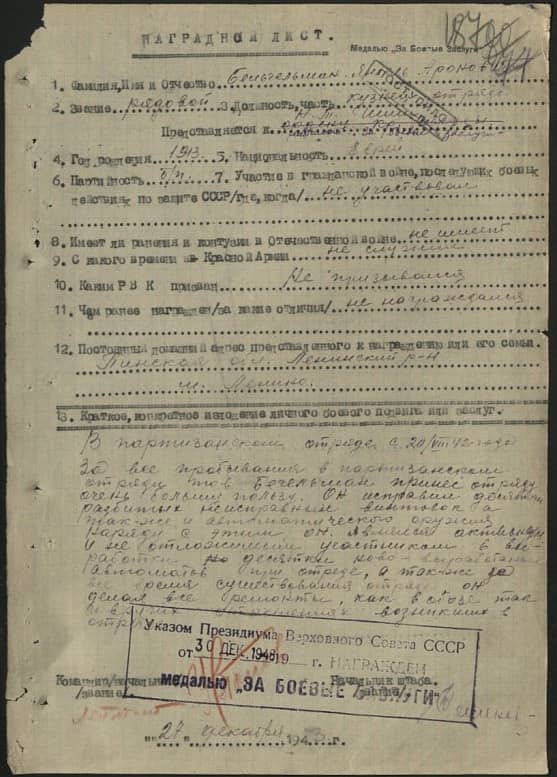 НАГРАДНОЙ ЛИСТ.
Медалью „За Боевые Заслуги"
1. Фамилия, Имя и Отчество Аронович
2. Звание рядовой 3. Должность, часть кузнец отряда
Представляется к
4. Год рождения 1913. 5. Национальность еврей
6. Партийность б/п. 7. Участие в гражданской войне, последующих боевых
действиях по защите СССР/где, когда/ не участвовал
8. Имеет ли ранения и контузии в Отечественной войне не имеет
9. С какого времени в Красной Армии не служил
10. Каким РВК призван Не призывался
11. Чем ранее награжден/за какие отличия/ не награждался
12. Постоянный домашний адрес представленного к награждению или его семьи.
Пинская обл. Ленинский р-н
м. Ленино.
13. Краткое, конкретное изложение личного боевого подвига или заслуг.
В партизанском отряде с 20/VIII 42 года
За все пребывания в партизанском
отряде тов принес отряду
очень большую пользу. Он исправил десятки
разбитых неисправных винтовок а
также и автоматического оружия
наряду с этим он явился активным
и участником в вы-
работки десятки ново-выработаных
автоматов при отряде, а так-же за
все время существования отряда он
делал все ремонты, как в обозе так
и возникших в
отряде
Указом Президиума Верховного Совета СССР
от 30 ДЕК. 1948 19 г. НАГРАЖДЕН
МЕДАЛЬЮ „ЗА БОЕВЫЕ ЗАСЛУГИ"
Командир/начальник Начальник штаба.
/звание/ /звание/
„27" декабря 1943 г.